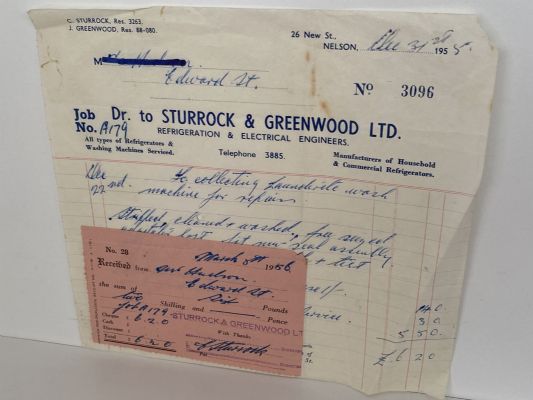 C. STURROCK, Res. 3263.
J. GREENWOOD, Res. 88-080.
26 New St.,
NELSON, Dec 31st 1955.
M
Edward St.
No 3096
Job Dr. to STURROCK & GREENWOOD LTD.
No. A179
REFRIGERATION & ELECTRICAL ENGINEERS.
All types of Refrigerators &
Washing Machines Serviced.
Telephone 3885.
Manufacturers of Household
& Commercial Refrigerators.
Dec
22nd. To collecting Launderite wash
machine for repairs
Stripped, cleaned & washed, free seized
fit new seal assembly
& test
self.
Service.
14 0.
3 0.
5 5 0.
£6 2 0
No. 28
March 8th 1956
Received from
Edward St.
the sum of Six Pounds
two Shilling and Pence
Job A179
Cheque 6.2.0
Cash
Discount
Total £ 6.2.0
STURROCK & GREENWOOD LT
With Thanks
C Sturrock
Per